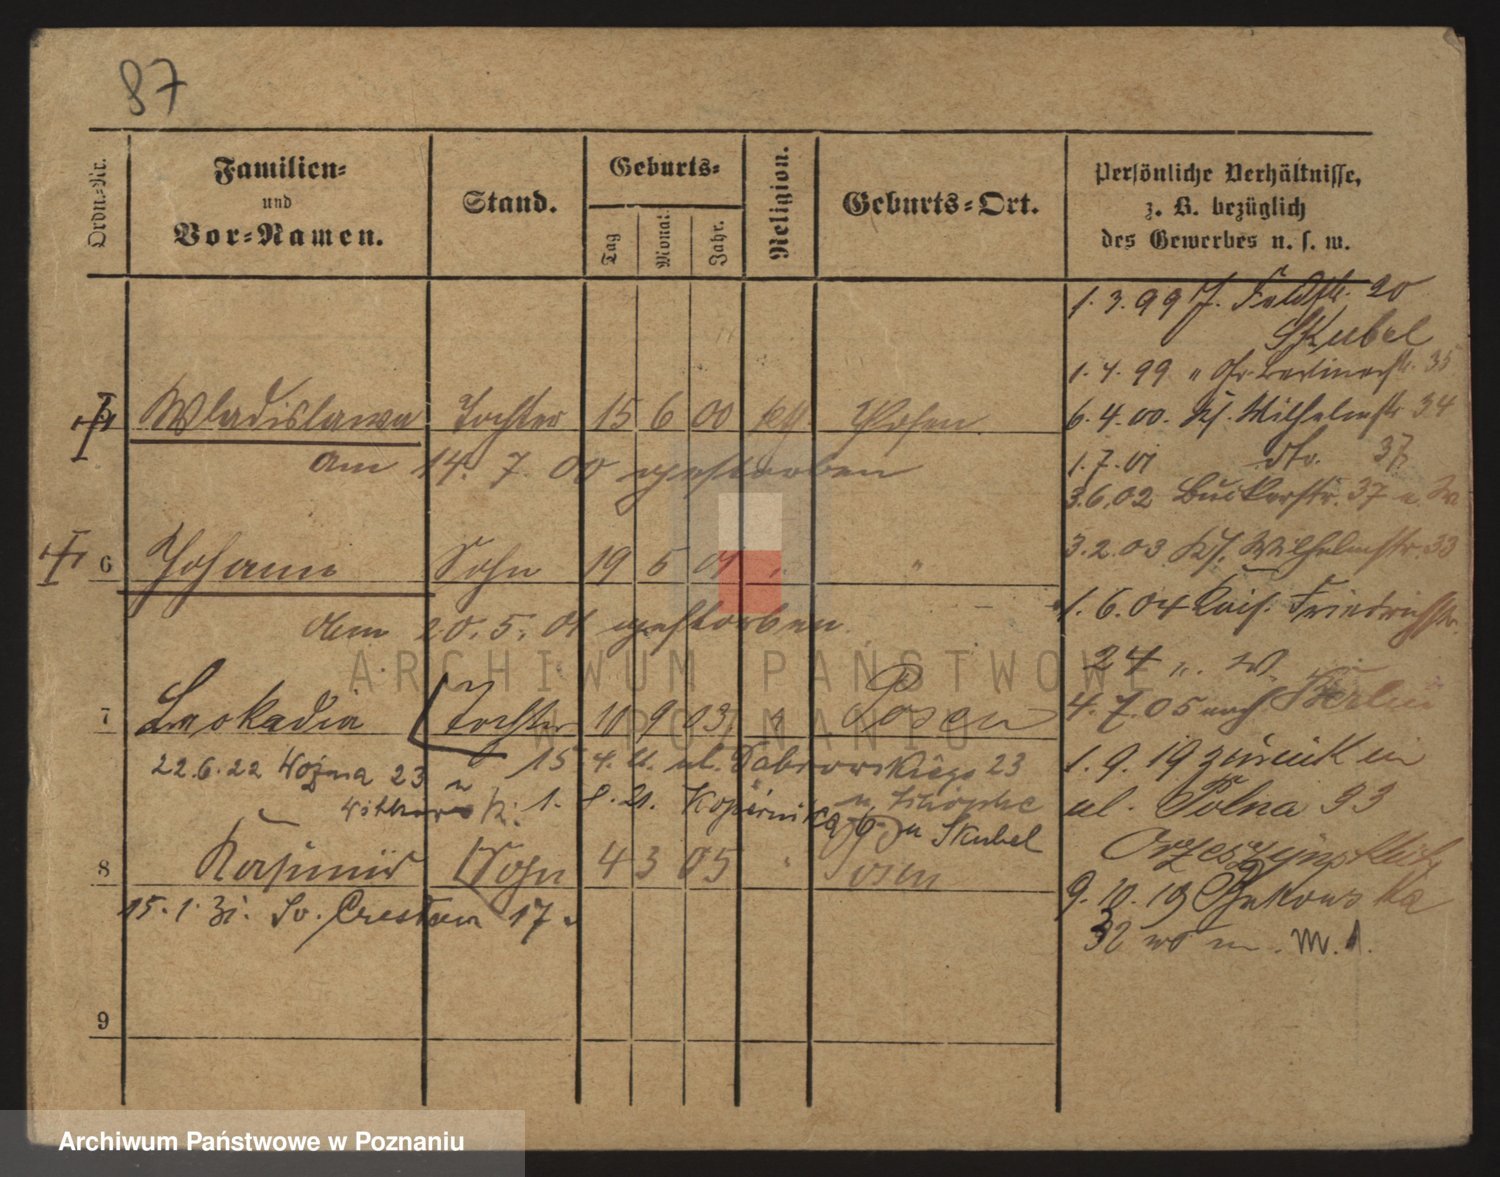 87
Ordn.-Nr.
Familien-
und
Vor-Namen.
Stand.
Geburts-
Tag
Monat.
Jahr.
Religion.
Geburts-Ort.
Persönliche Verhältnisse,
z. B. bezüglich
des Gewerbes u. s. w.
1. 3. 99 J. Feldstr. 20
Skubel
1. 4. 99 " Gr. Berlinerstr. 35
Wladislawa Tochter 15 6 00 kth Posen
6. 4. 00. Wilhelmstr 34
am 14. 7. 00 gestorben
1. 7. 01 dto. 37
3. 6. 02 Bukerstr. 37
6 Johann Sohn 19 5 01 " "
3. 2. 03 Wilhelmstr. 33
dem 20. 5. 01 gestorben
1. 6. 04 Kais. Friedrichstr.
24 " W.
7 Leokadia Tochter 10 9 03 " Posen
4. 7. 05 nach Berlin
22. 6. 22 Woźna 23
15. 4. ul. Dąbrowskiego 23
1. 9. 19 zurück in
1. 8. 21. Kopernika 6
ul. Polna 33
Skubel
8 Kasimir Sohn 4 3 05 " Posen
15. 1. Św. Czesław 17
9. 10. 19 Żukowska
32 M. 1.
9
ARCHIWUM PAŃSTWOWE
W POZNANIU
Archiwum Państwowe w Poznaniu